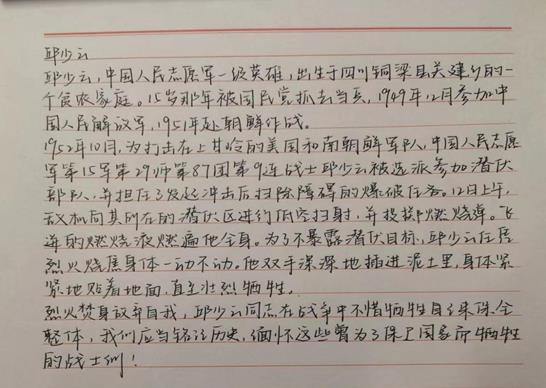 邱少云
邱少云,中国人民志愿军一级英雄,出生于四川铜梁县关建乡的一
个贫农家庭。15岁那年被国民党抓去当兵,1949年12月参加中
国人民解放军,1951年赴朝鲜作战。
1952年10月,为打击在上甘岭的美国和南朝鲜军队,中国人民志愿
军第15军第29师第87团第9连战士邱少云被选派参加潜伏
部队,并担任了发起冲击后扫除障碍的爆破任务。12日上午,
敌机向其所在的潜伏区进行低空扫射,并投掷燃烧弹。飞
迸的燃烧液燃遍他全身。为了不暴露潜伏目标,邱少云任凭
烈火烧焦身体一动不动。他双手深深地插进泥土里,身体紧
紧地贴着地面,直至壮烈牺牲。
烈火焚身放弃自我,邱少云同志在战争中不惜牺牲自己来保全
整体,我们应当铭记历史,缅怀这些曾为了保卫国家而牺牲
的战士们!